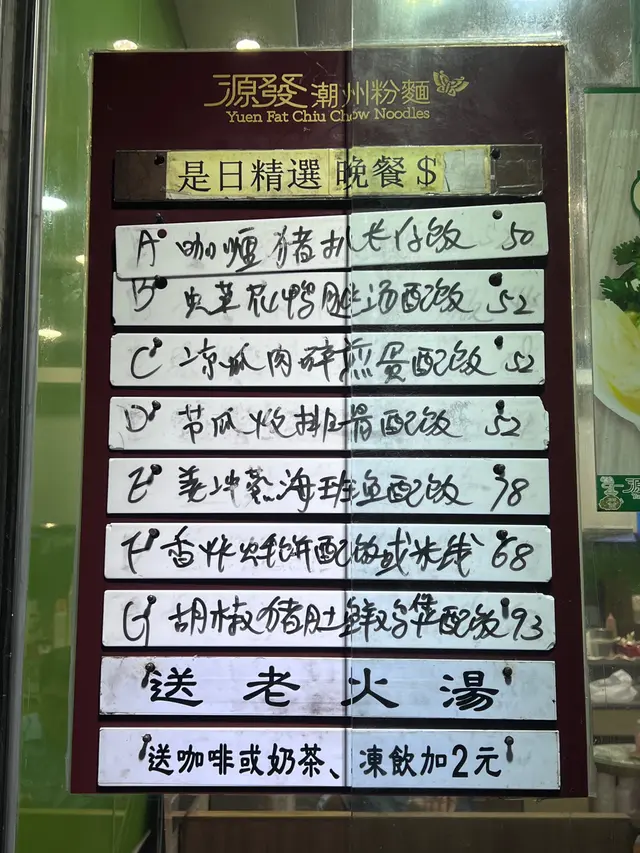 源發潮州粉麵
Yuen Fat Chiu Chow Noodles
是日精選 晚餐 $
A 咖喱猪扒长仔饭 50
B 虫草花鸭腿汤配饭 52
C 凉瓜肉碎煎蛋配饭 52
D 节瓜炆排骨配饭 52
E 姜冲蒸海班鱼配饭 78
F 香炸蚝饼配饭或米线 68
G 胡椒猪肚鲜鸡煲配饭 93
送老火湯
送咖啡或奶茶、凍飲加2元